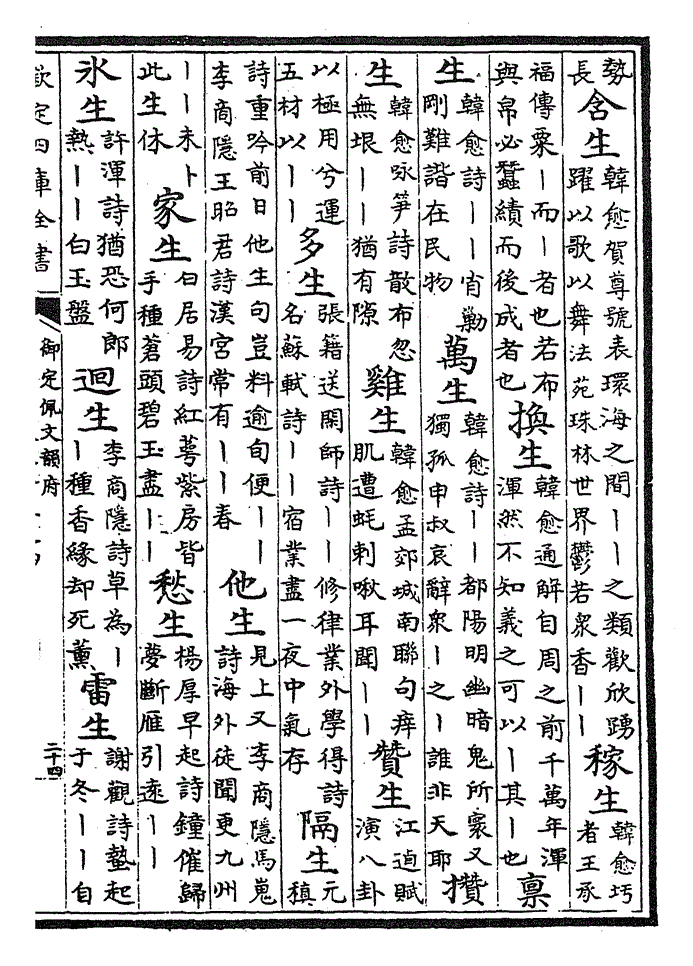 勢長含生韓愈賀尊號表環海之間丨丨之類歡欣踴躍以歌以舞法苑珠林世界鬱若衆香丨丨稼生韓愈圬者王承
福傳粟丨而丨者也若布與帛必蠶績而後成者也換生韓愈通解自周之前千萬年渾渾然不知義之可以丨其丨也稟
生韓愈詩丨丨肖勦剛難諧在民物萬生韓愈詩丨丨都陽明幽暗鬼所寰又獨孤申叔哀辭衆丨之丨誰非天耶攢
生韓愈咏笋詩散布忽無垠丨丨猶有隙雞生韓愈孟郊城南聯句痒肌遭蚝刺啾耳聞丨丨贊生江逌賦演八卦
以極用兮運五材以丨丨多生張籍送閑師詩丨丨修律業外學得詩名蘇軾詩丨丨宿業盡一夜中氣存隔生元稹
詩重吟前日他生句豈料逾旬便丨丨李商隱王昭君詩漢宫常有丨丨春他生見上又李商隱馬嵬詩海外徒聞更九州
丨丨未卜此生休家生白居易詩紅萼紫房皆手種蒼頭碧玉盡丨丨愁生楊厚早起詩鐘催歸夢斷雁引遠丨丨
氷生許渾詩猶恐何郎熱丨丨白玉盤迴生李商隱詩草為丨丨種香緣却死薰雷生謝觀詩蟄起于冬丨丨自
欽定四庫全書
御定佩文韻府
二十四